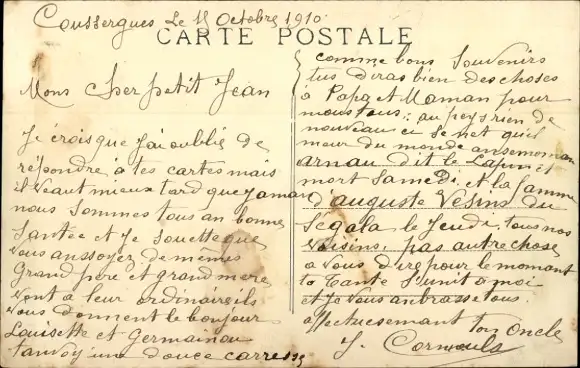 Coussergues Le 15 Octobre 1910
CARTE POSTALE
Mons Cher petit Jean
Je crois que j'ai oublié de
répondre a tes cartes mais
il veaut mieux tard que jamais
nous sommes tous an bonne
Santée et Je souette que
vous anssoyez de mêmes
Grand père et grand mere
vont a leur ordinaireils
vous donnent le bonjour
Louisette et Germainou
tanvoy une douce carresse
comme bons Souvenirs
tus diras bien des choses
à Papa et Maman pour
nous tous; au peys rien de
nouveau ci se net quil
meur du monde ansemoman
arnau dit le Lapin et
mort Samedi et la famme
d'auguste Vesins du
Segala le Jeudi tous nos
voisins, pas autre chose
a vous dire pour le momant
ta tante S'unit a moi
et Je vous anbrasse tous
affectueusemant ton Oncle
J.